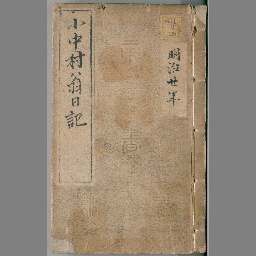 小中村翁日記
明治廿年